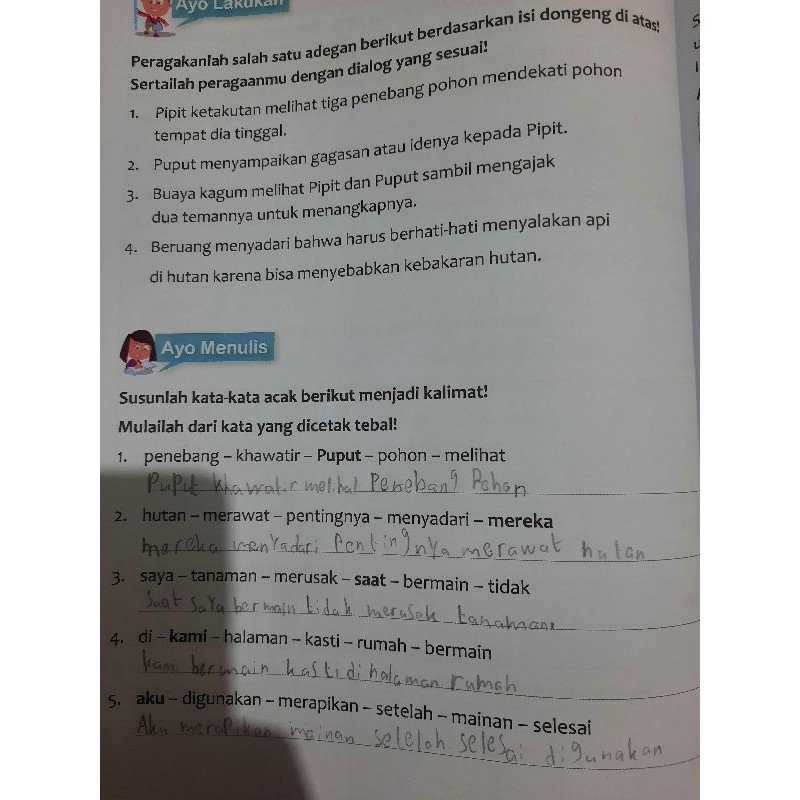 Ayo Lakukan
Peragakanlah salah satu adegan berikut berdasarkan isi dongeng di atas!
Sertailah peragaanmu dengan dialog yang sesuai!
1. Pipit ketakutan melihat tiga penebang pohon mendekati pohon
tempat dia tinggal.
2. Puput menyampaikan gagasan atau idenya kepada Pipit.
3. Buaya kagum melihat Pipit dan Puput sambil mengajak
dua temannya untuk menangkapnya.
4. Beruang menyadari bahwa harus berhati-hati menyalakan api
di hutan karena bisa menyebabkan kebakaran hutan.
Ayo Menulis
Susunlah kata-kata acak berikut menjadi kalimat!
Mulailah dari kata yang dicetak tebal!
1. penebang – khawatir – Puput – pohon – melihat
Puput khawatir melihat Penebang Pohon
2. hutan – merawat – pentingnya – menyadari – mereka
mereka menyadari Pentingnya merawat hutan
3. saya – tanaman – merusak – saat – bermain – tidak
Saat saya bermain tidak merusak tanaman
4. di – kami – halaman – kasti – rumah – bermain
kami bermain kasti di halaman rumah
5. aku – digunakan – merapikan – setelah – mainan – selesai
Aku merapikan mainan setelah selesai digunakan